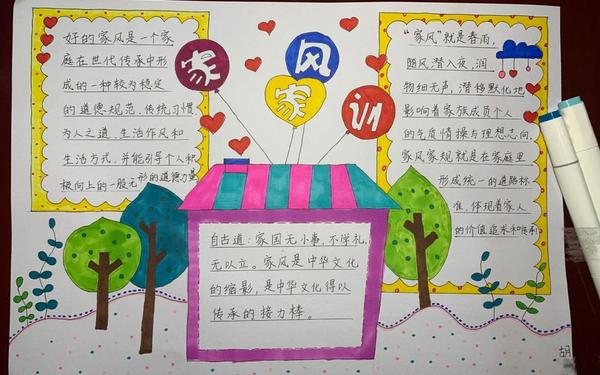 家风家训
好的家风是一个家
庭在世代传承中形
成的一种较为稳定
的道德规范、传统习惯、
为人之道、生活作风和
生活方式,并能引导个人积
极向上的一股无形的道德力量
"家风"就是春雨,
随风潜入夜,润
物细无声,潜移默化地
影响着家族成员个人
的气质情操与理想志向,
家风家规就是在家庭里
形成统一的道路标
准,体现着家人
的价值追求和
自古道:家国无小事,不学礼,
无以立。家风是中华文化
的缩影,是中华文化得以
传承的接力棒。
胡